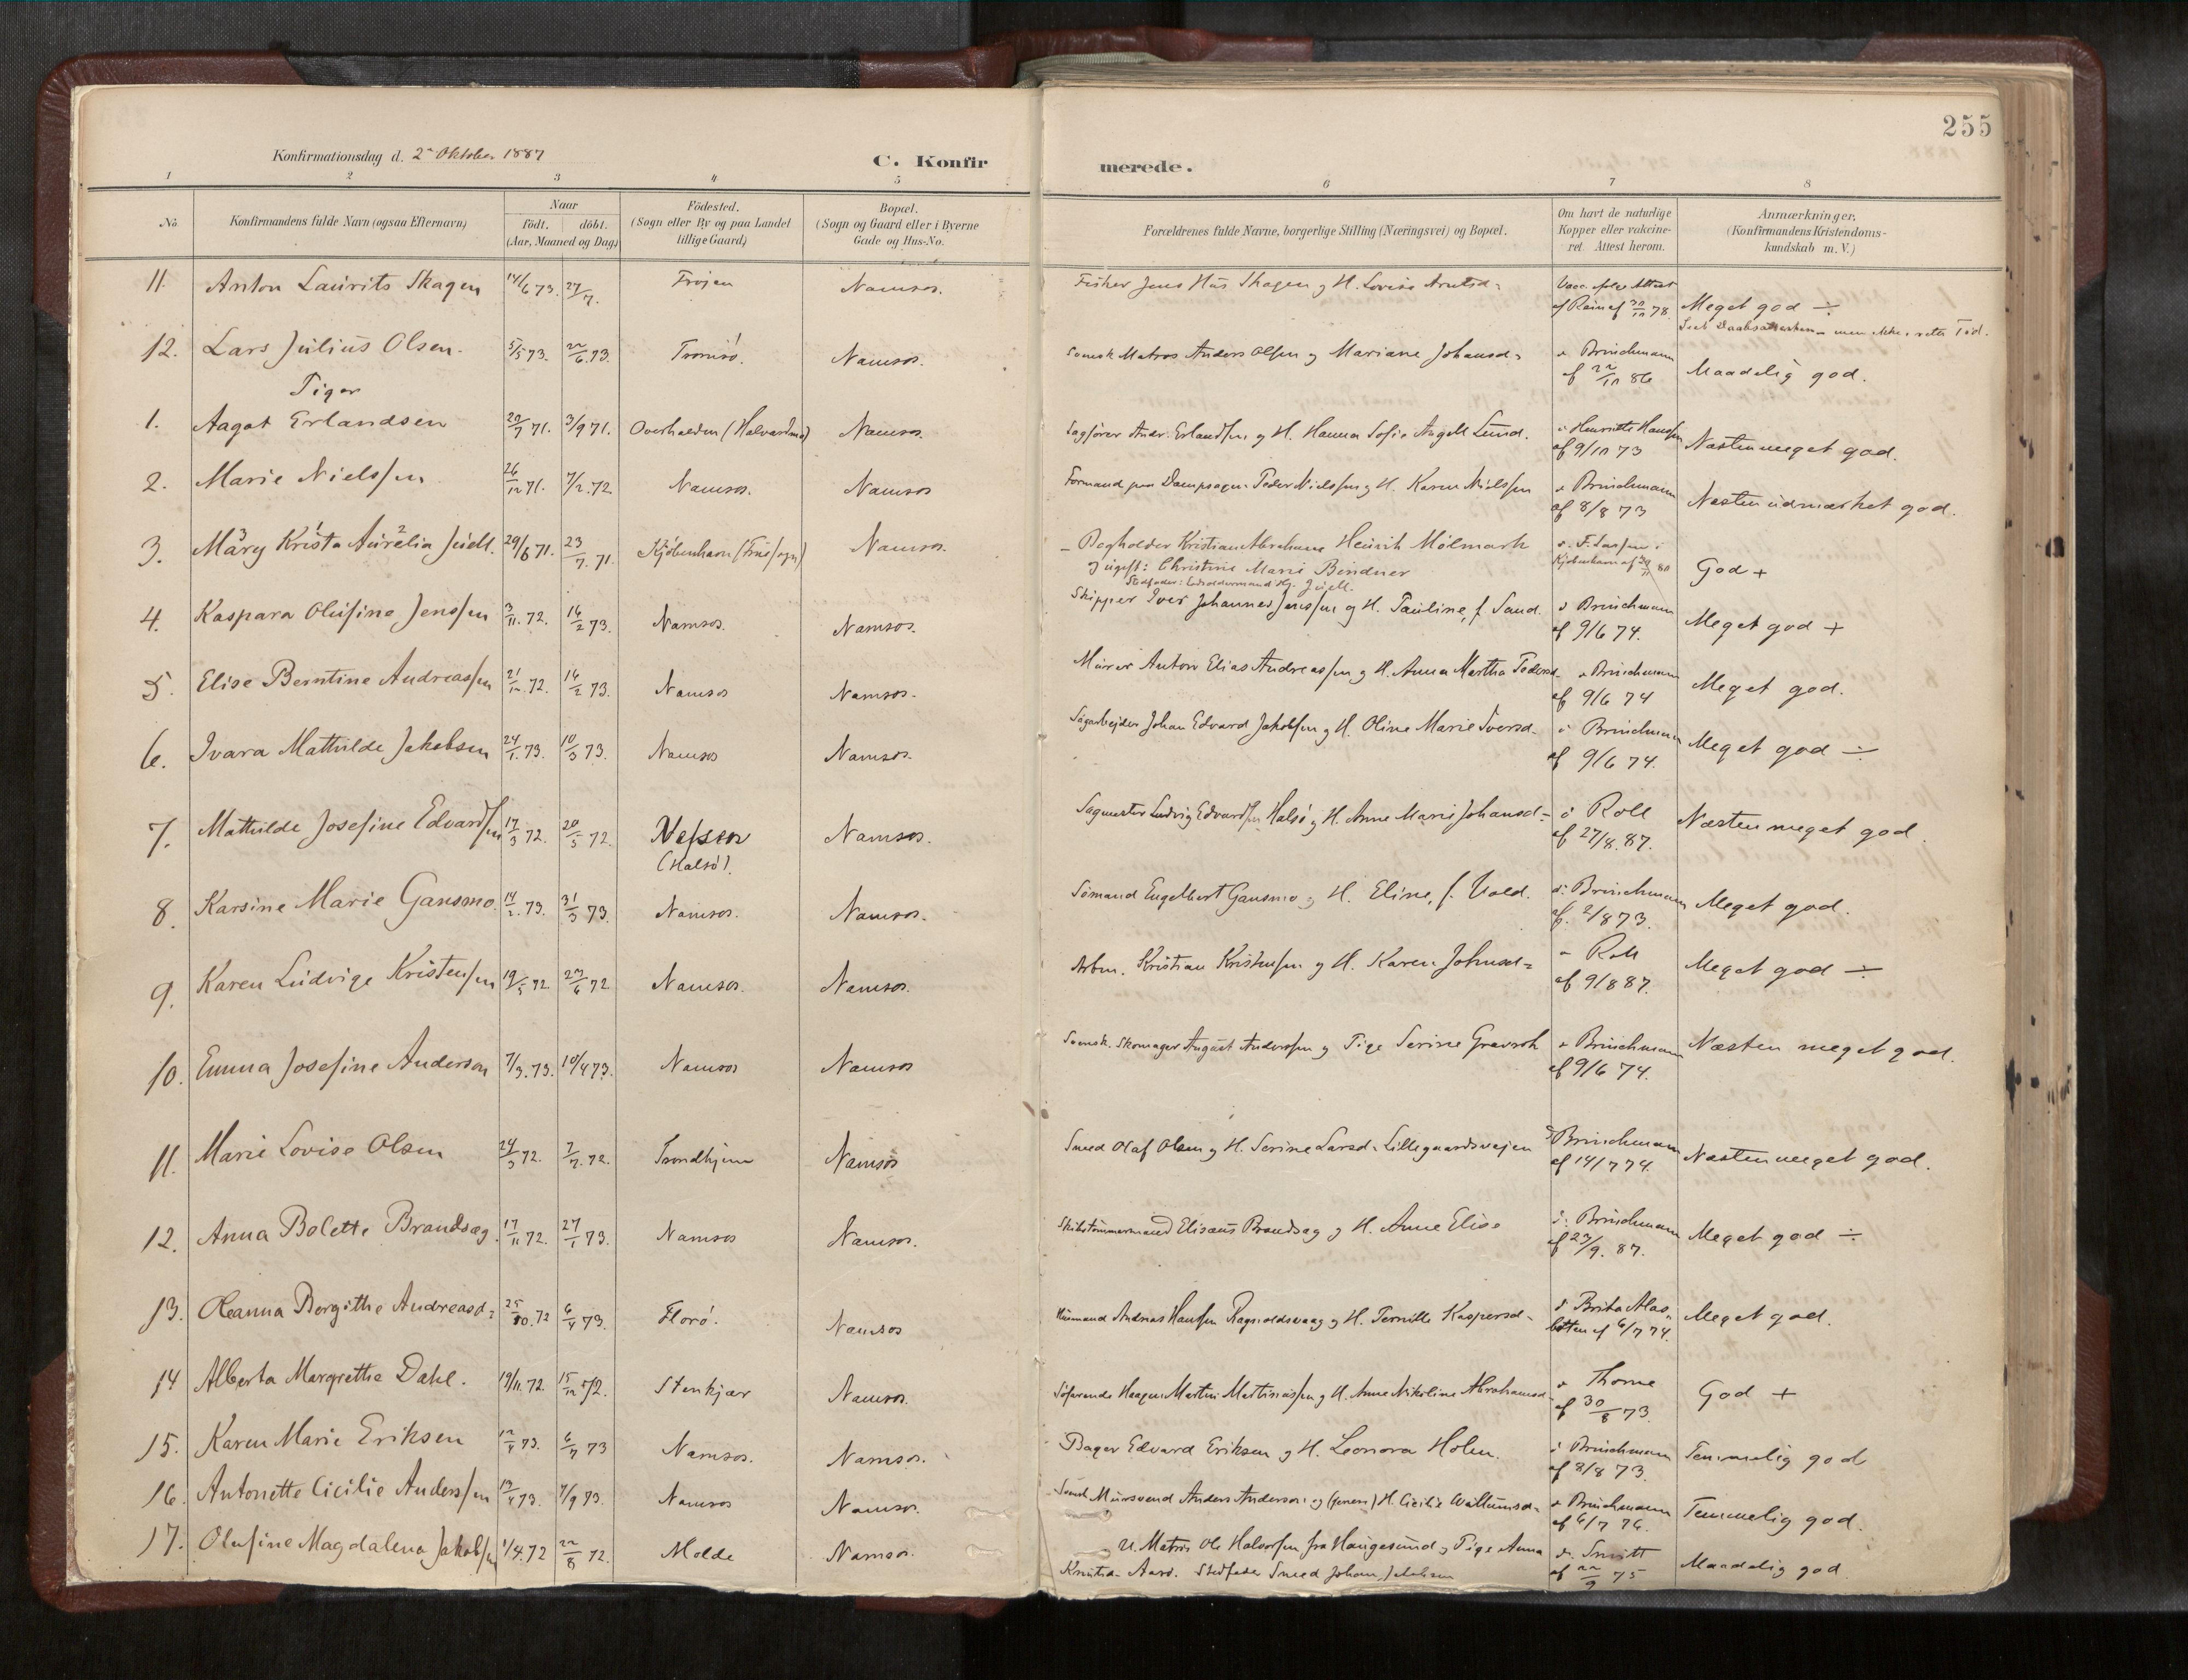 255
Konfirmationsdag d. 2 Oktober 1887
C. Konfirmerede.
1 2 3 4 5 6 7 8
No
Konfirmandens fulde Navn (ogsaa Efternavn)
Naar
födt. döbt.
(Aar, Maaned og Dag)
Födested.
(Sogn eller By og paa Landet
tillige Gaard)
Bopæl.
(Sogn og Gaard eller i Byerne
Gade og Hus-No.
Forældrenes fulde Navne, borgerlige Stilling (Næringsvei) og Bopæl.
Om havt de naturlige
Kopper eller vakcine-
ret. Attest herom.
Anmærkninger.
(Konfirmandens Kristendoms-
kundskab m. V.)
11. Anton Laurits Skagen 14/6 73. 27/7. Frøien Namsos. Fisker Jens Skagen og H. Lovise Arntsd. Vacc. Attest af 78. Meget god ÷
12. Lars Julius Olsen. 5/5 73. 22/6 73. Tromsø. Namsos. Svensk Matros Anders Olsen og Mariane Johansd. Brinchmann af 86 Maadelig god.
Piger
1. Aagot Erlandsen 20/7 71. 3/9 71. Overhalden (Halvardmo) Namsos. Sagfører Andr. Erlandsen og H. Hanna Sofie Angell Lund. Henriette Hansen af 9/10 73 Næsten meget god.
2. Marie Nielssen 26/12 71. 7/2 72. Namsos. Namsos Formand paa Dampsagen Peder Nielssen og H. Karen Nielssen Brinchmann af 8/8 73 Næsten udmærket god.
3. Mary Krista Aurelia Juell. 29/6 71. 23/7. 71. Kjøbenhavn (Frue sogn) Namsos. Bogholder Kristian Abraham Heinrik Mølmark
og ugift: Christine Marie Bindner
Stedfader: Hj. Juell.
Kjøbenhavn God +
4. Kaspara Olusine Jenssen 3/11. 72. 16/2 73. Namsos. Namsos. Skipper Iver Johannes Jenssen og H. Pauline, f. Sand. Brinchmann af 9/6 74. Meget god +
5. Elise Berntine Andreassen 21/12. 72. 16/2 73. Namsos Namsos. Murer Anton Elias Andreassen og H. Anna Martha Pedersd. Brinchmann af 9/6 74 Meget god.
6. Ivara Mathilde Jakobsen 24/1. 73. 10/3 73. Namsos Namsos. Sagarbejder Johan Edvard Jakobsen og H. Oline Marie Iversd. Brinchmann af 9/6 74. Meget god ÷
7. Mathilde Josefine Edvardsen 17/3 72. 20/5 72. Næsset
(Halsø). Namsos. Sagmester Ludvig Edvardsen Halsø og H. Anne Marie Johansd. Roll af 27/8. 87. Næsten meget god.
8. Karsine Marie Gansmo. 14/2. 73. 31/3 73. Namsos. Namsos. Sømand Engelbert Gansmo og H. Eline, f. Vold. Brinchmann af. 2/8 73. Meget god.
9. Karen Ludvige Kristensen 19/5 72. 23/6 72. Namsos. Namsos. Arbm. Kristian Kristensen og H. Karen Johnsd. Roll af 9/8 87. Meget god ÷
10. Emma Josefine Anderson 7/3. 73. 10/4 73. Namsos Namsos Svensk. Skomager August Anderssen og Pige Serine Brinchmann af 9/6 74. Næsten meget god.
11. Marie Lovise Olsen 24/3 72. 7/7. 72. Trondhjem Namsos Smed Olaf Olsen og H. Serine Larsd. Lillegaardsvejen Brinchmann af 14/7 74. Næsten meget god.
12. Anna Bolette Brandsæg. 17/11 72. 27/1 73. Namsos Namsos. Skibstømmermand Elisæus Brandsæg og H. Anne Elise Brinchmann af 23/9. 87. Meget god ÷
13. Oleanna Bergithe Andreasd. 25/10. 72 6/4 73. Florø. Namsos Husmand Andreas Hansen og H. Pernille Kaspersd. Brita af 6/7 74. Meget god.
14 Alberta Margrethe Dahl. 19/11. 72. 15/12 72. Stenkjær Namsos. Søfarende Haagen Martin Mathiassen og H. Anne Nikoline Abrahamsd. Thorne af 30/8 73. God +
15. Karen Marie Eriksen 12/4 73. 6/7 73 Namsos. Namsos. Bager Edvard Eriksen og H. Leonora Holm. Brinchmann af 8/8 73. Temmelig god
16. Antonette Cicilie Anderssen 13/4 73. 7/9 73. Namsos Namsos. Svensk Mursvend Anders Anderson og H. Cicilie Brinchmann af 6/7 76. Temmelig god.
17. Olufine Magdalena Jakobsen 1/4. 72 22/8 72. Molde Namsos. U. Matros Ole Halvorsen fra Haugesund og Pige Anna
Knutsd. Stedfader Smed Johan Jakobsen Smitt af 22/9 75 Maadelig god